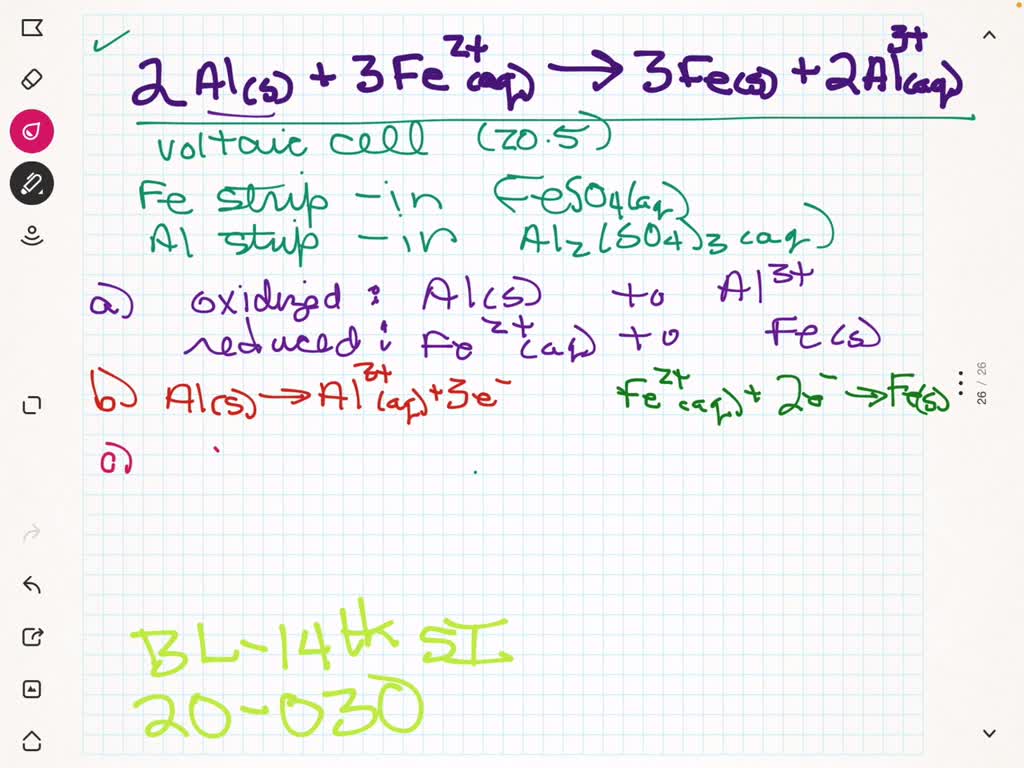 2Al(s) + 3Fe²⁺(aq) → 3Fe(s) + 2Al³⁺(aq)
voltaic cell (20.5)
Fe strip - in FeSO₄(aq)
Al strip - in Al₂(SO₄)₃(aq)
a) oxidized : Al(s) to Al³⁺
reduced : Fe²⁺(aq) to Fe(s)
b) Al(s) → Al³⁺(aq) + 3e⁻ Fe²⁺(aq) + 2e⁻ → Fe(s)
c)
26 / 26
BL-14th SI
20-030